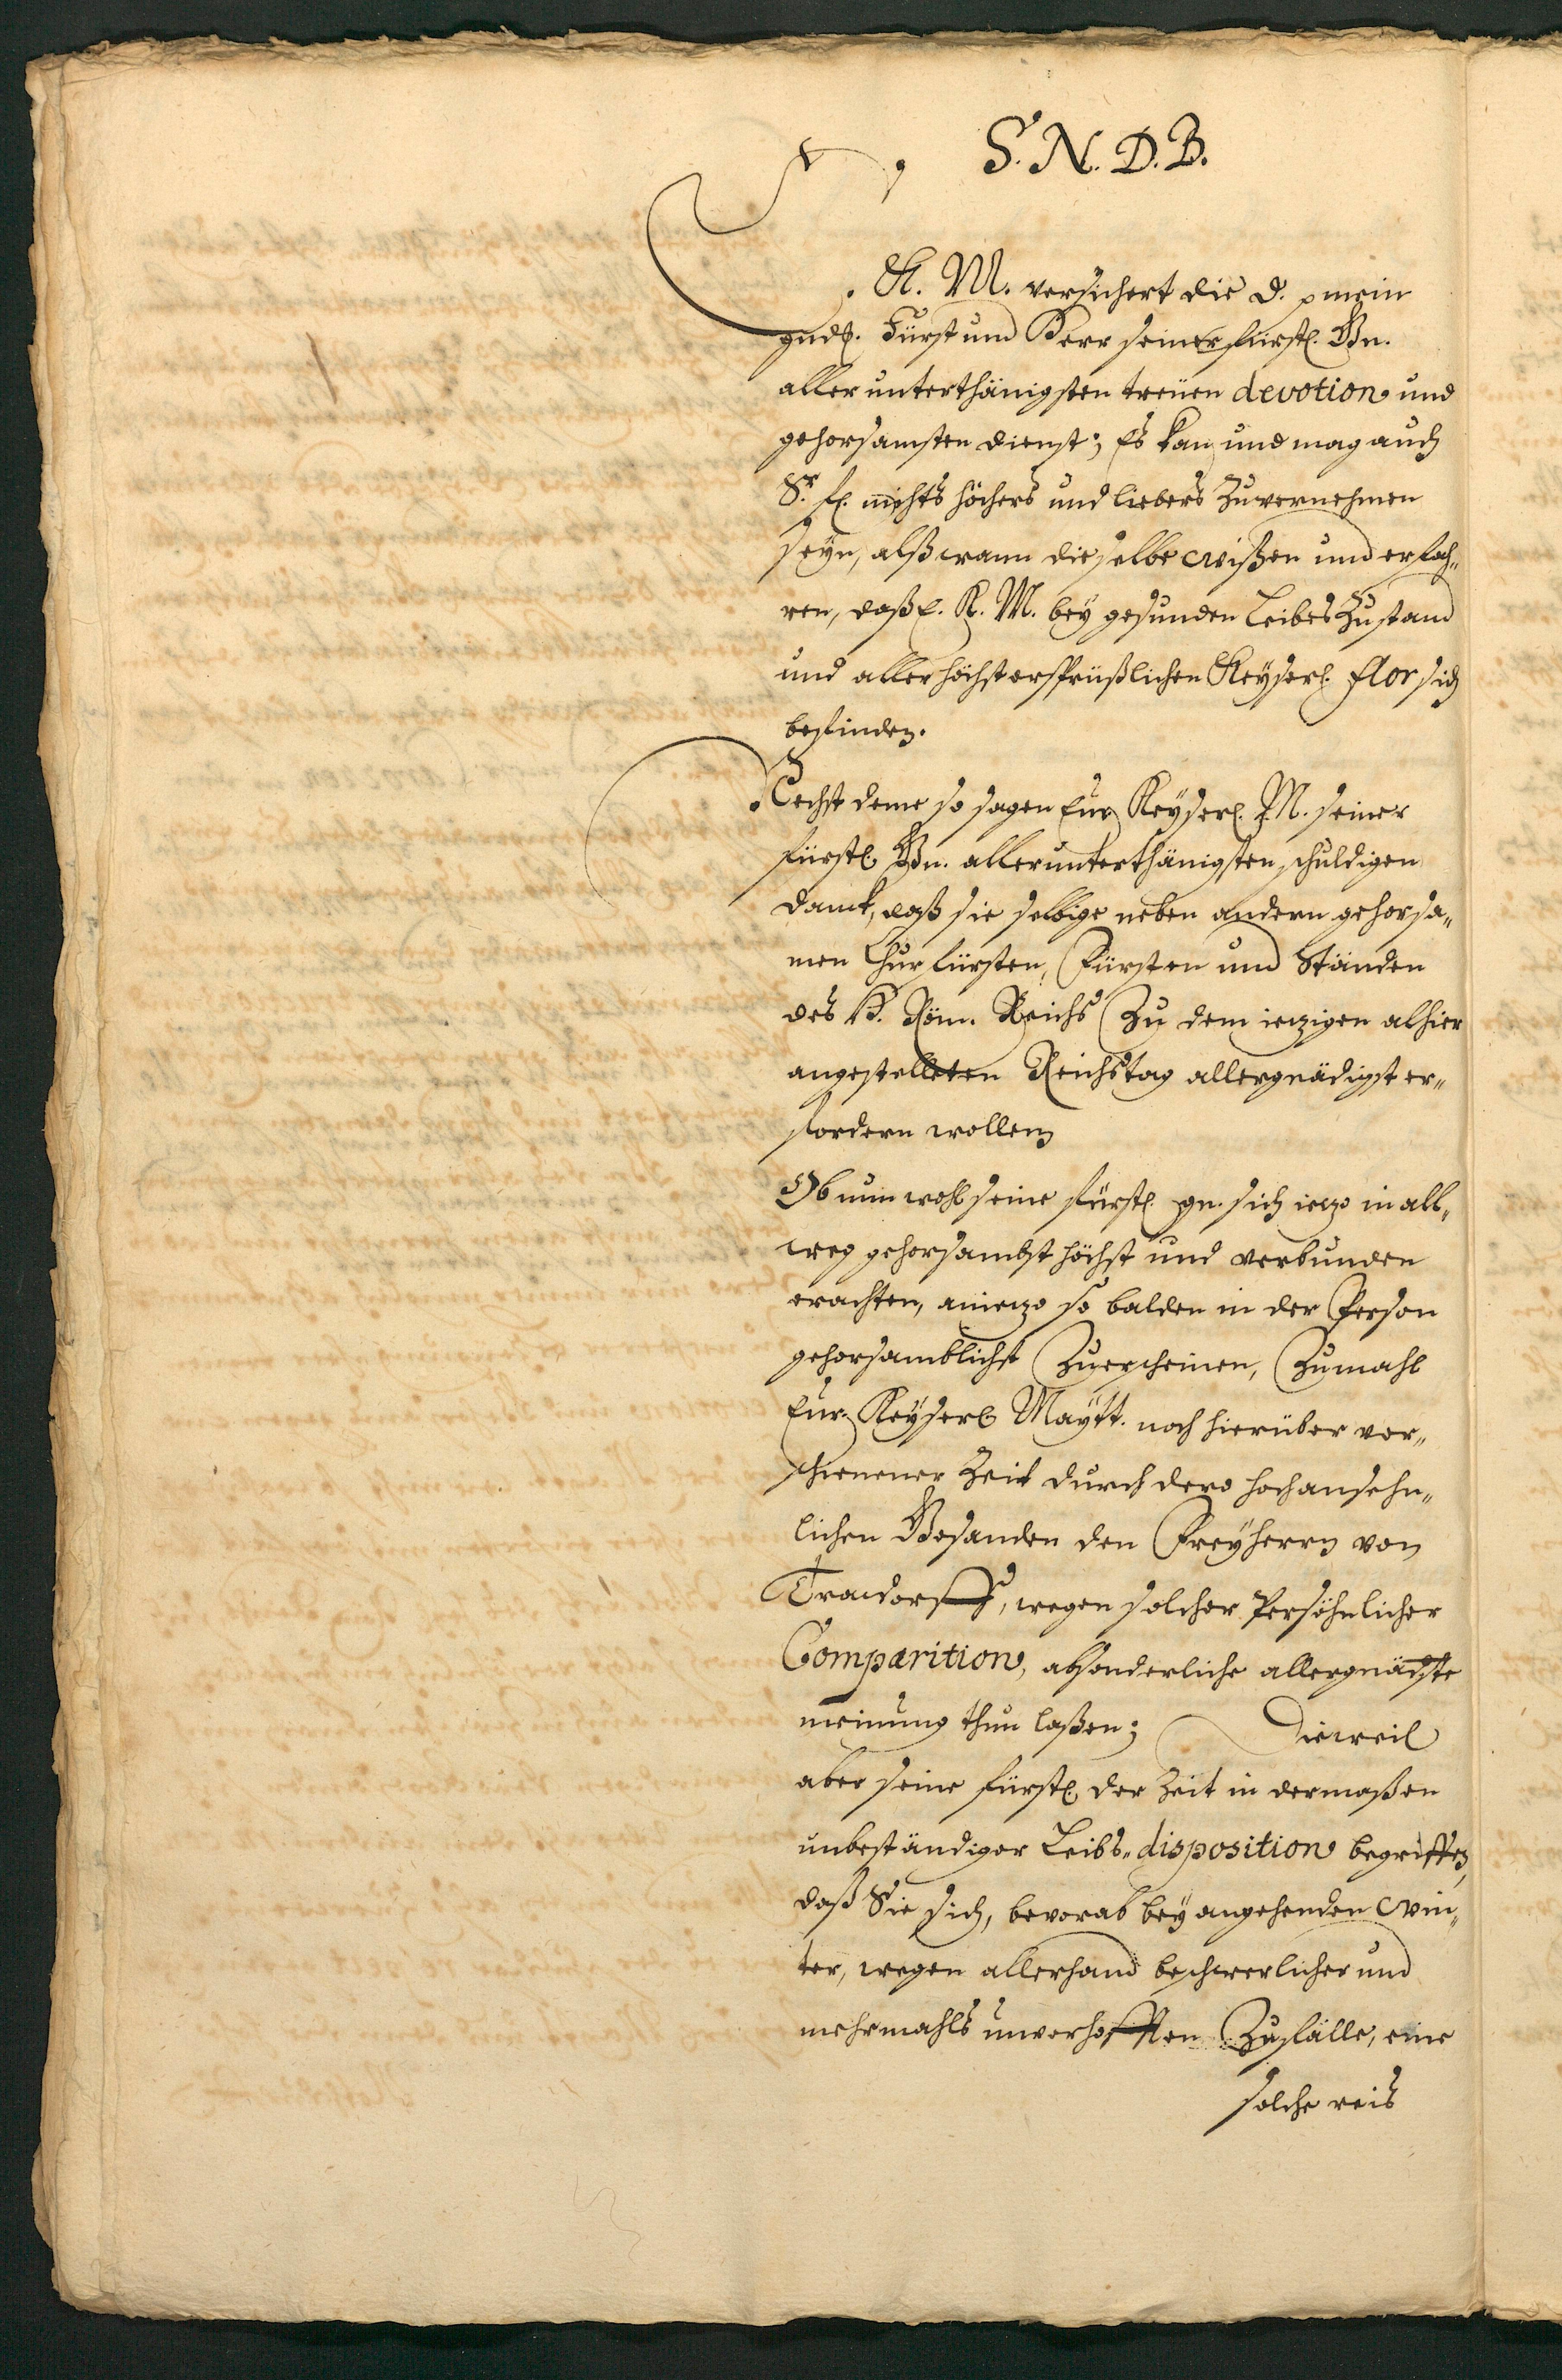 S. N. D. B.
E. K. M. versichert die d. p mein
gnäd. Fürst und Herr seiner fürstl. Gn.
aller unterthänigsten treüen devotion und
gehorsamsten dienst; Es kan und mag auch
Sr. fl. nichts höchers und liebers Zuvernehmen
seyn, alß wann dieselbe wißen und erfah„
ren, daß E. K. M. bey gesunden Leibes Zustand
und allerhöchst ersprüßlichen Keyserl. flor sich
befinden.
Nechst deme so sagen Eur Keyserl. M. seiner
fürstl. Gn. allerunterthänigsten schuldigen
danck, daß sie selbige neben andern gehorsa„
men Churfürsten, Fürsten und Ständen
des H. Röm. Reichs Zu dem iezigen alhier
angestelleten Reichstag allergnädigst er„
fordern wollen
Ob nun wohl seine fürstl. gn. sich iezo in all„
weg gehorsambst höchst und verbunden
erachten, aniezo so balden in der Person
gehorsamblichst Zuerscheinen, Zumahl
Eur Keyserl. Maytt. noch hierüber ver„
schienener Zeit durch dero hochansehn„
lichen Gesanden den Freyherrn von
wegen solcher Persöhnlicher
Comparition, absonderliche allergnädste
meinung thun laßen; Dieweil
aber seine fürstl. der Zeit in dermaßen
unbeständiger Leibs„disposition begriffen,
daß Sie sich, bevorab bey angehenden win„
ter, wegen allerhand beschwerlicher und
mehrmahls unverhofften Zufälle, eine
solche reis